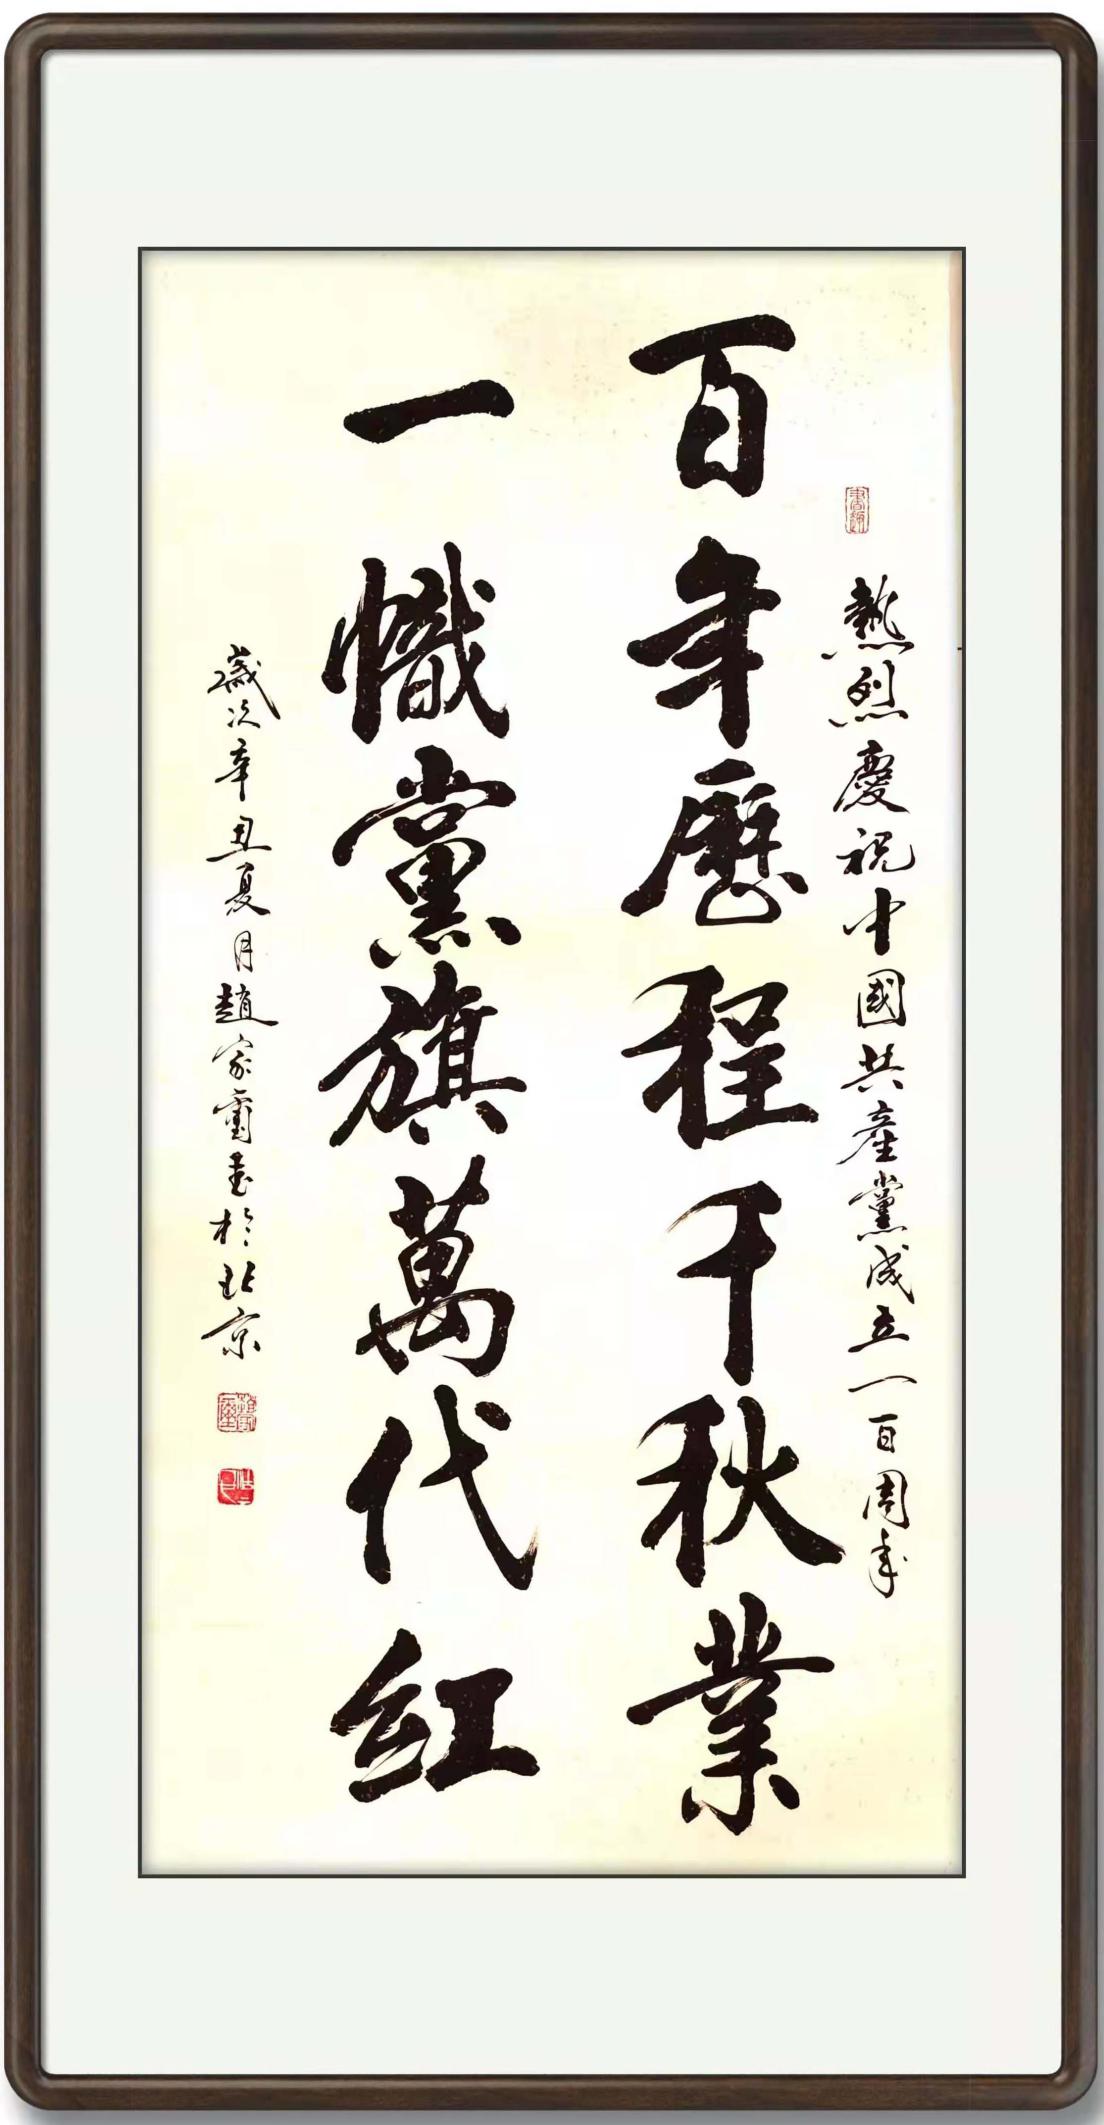 熱烈慶祝中國共產黨成立一百周年
百年歷程千秋業
一幟黨旗萬代紅
歲次辛丑夏月趙家寶書於北京